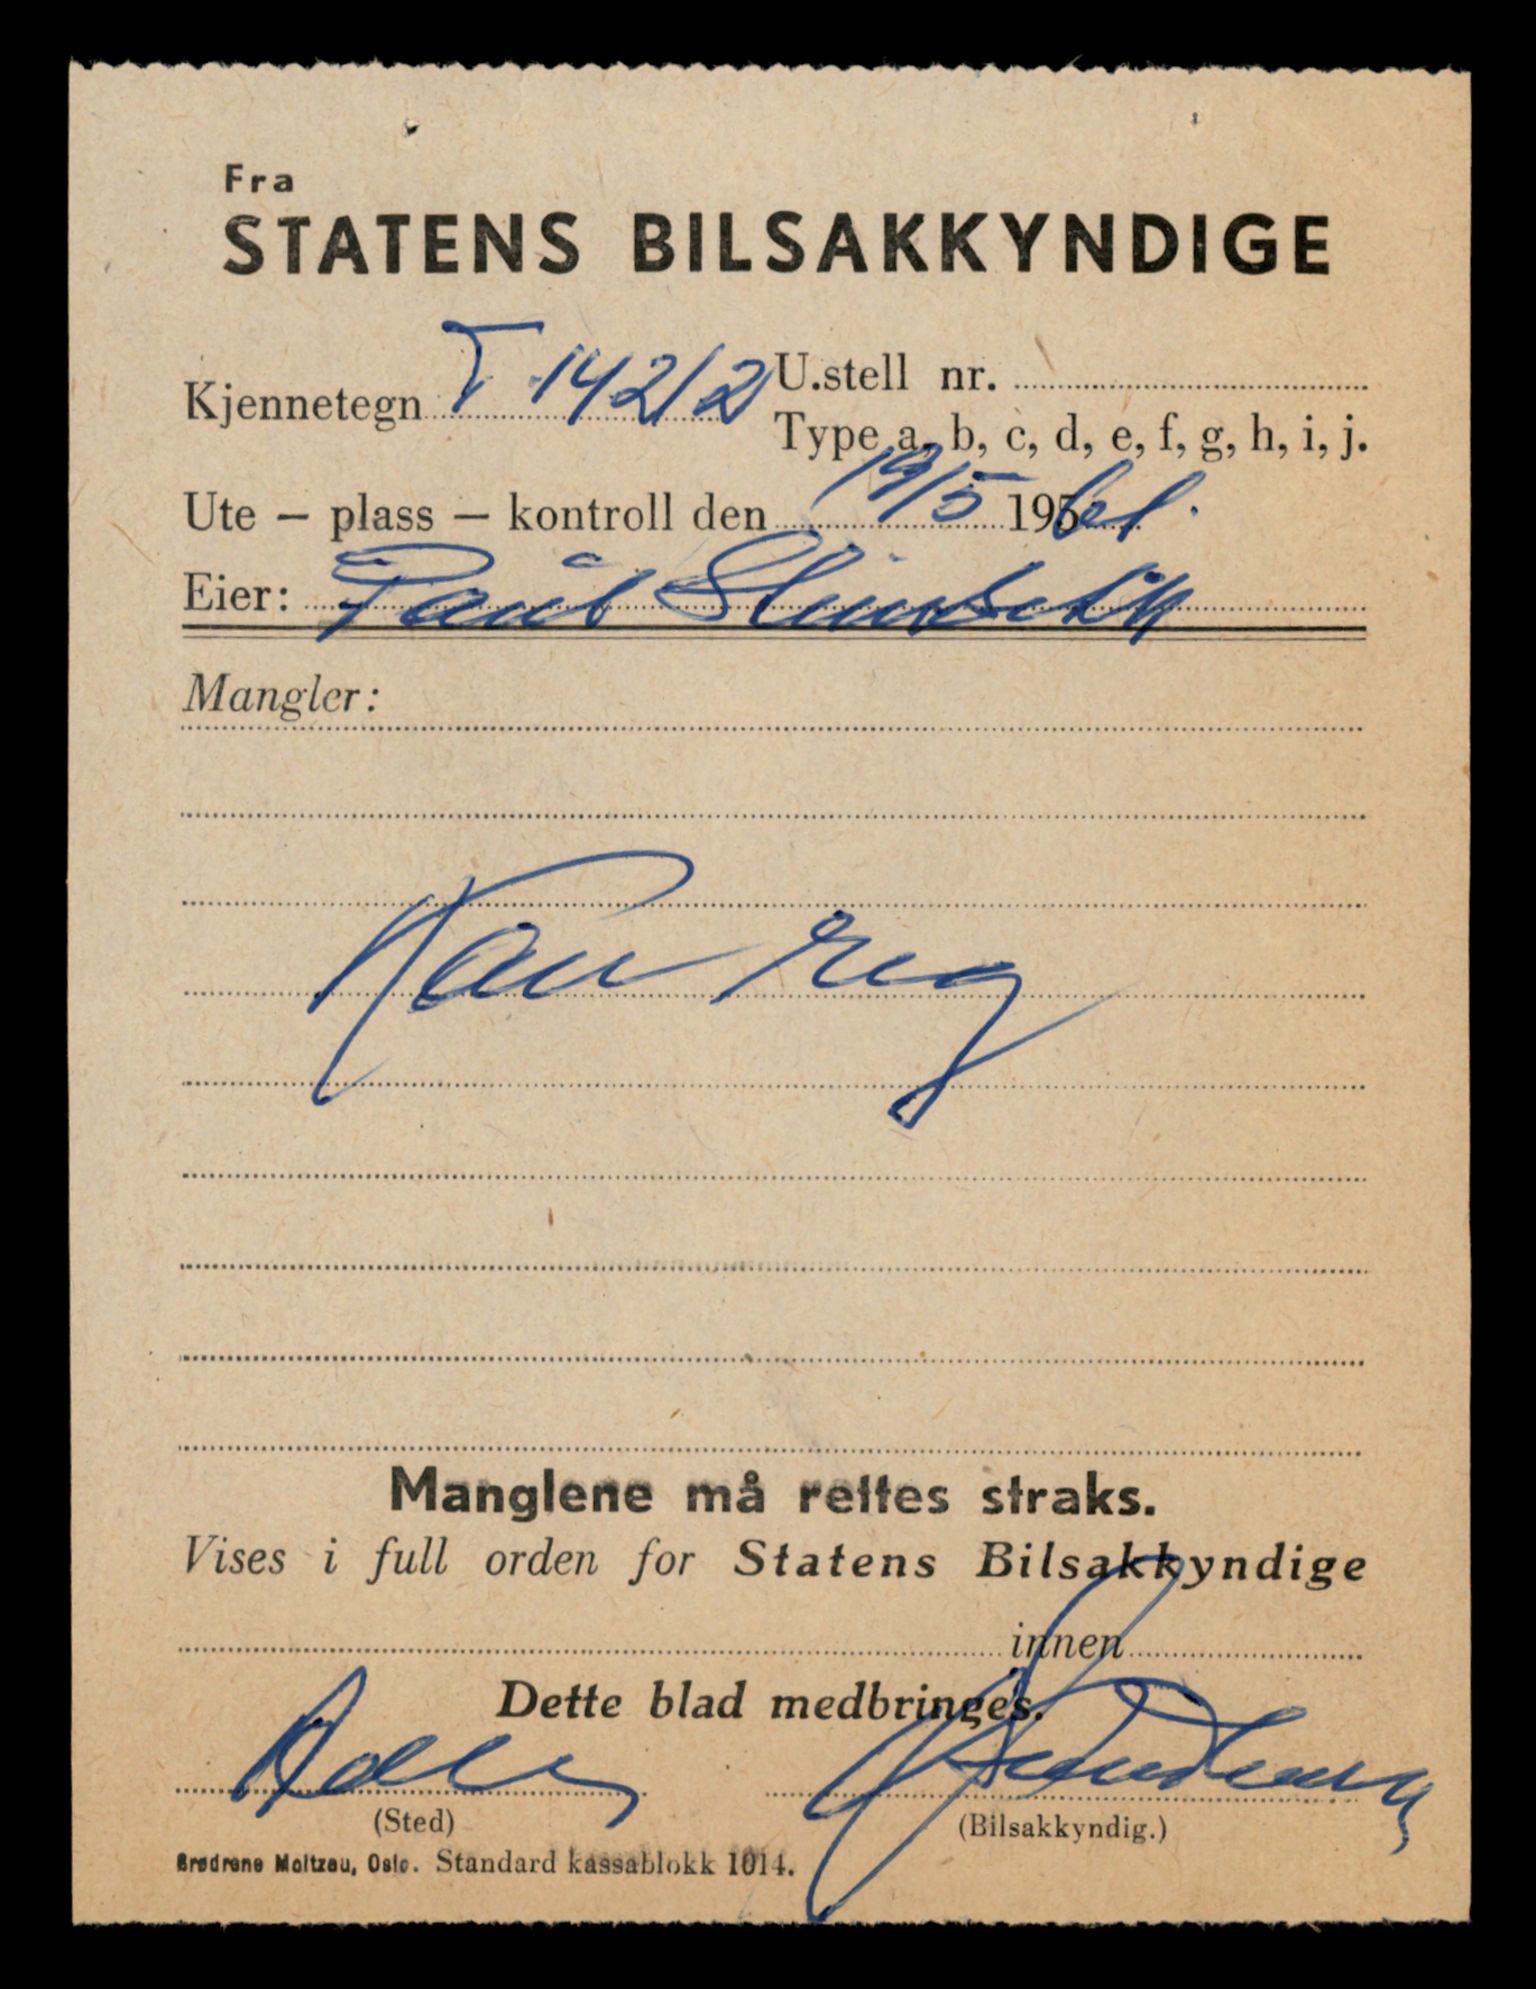 Fra
STATENS BILSAKKYNDIGE
Kjennetegn T 14212 U.stell nr.
Type a, b, c, d, e, f, g, h, i, j.
Ute – plass – kontroll den 19/5 195
Eier: Paul
Mangler:
Kan reg
Manglene må rettes straks.
Vises i full orden for Statens Bilsakkyndige
innen
Dette blad medbringes.
(Sted) (Bilsakkyndig.)
Brødrene Moltzau, Oslo. Standard kassablokk 1014.